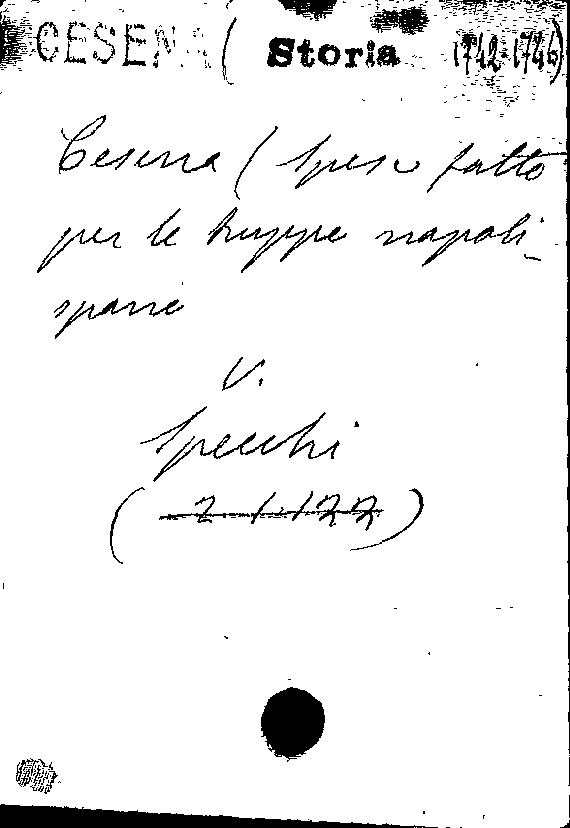 CESENA ( Storia 1742-1746)
Cesena ( Spese fatte
per le truppe napoli-
spane
V.
Specchi
( 2. 1. 122 )